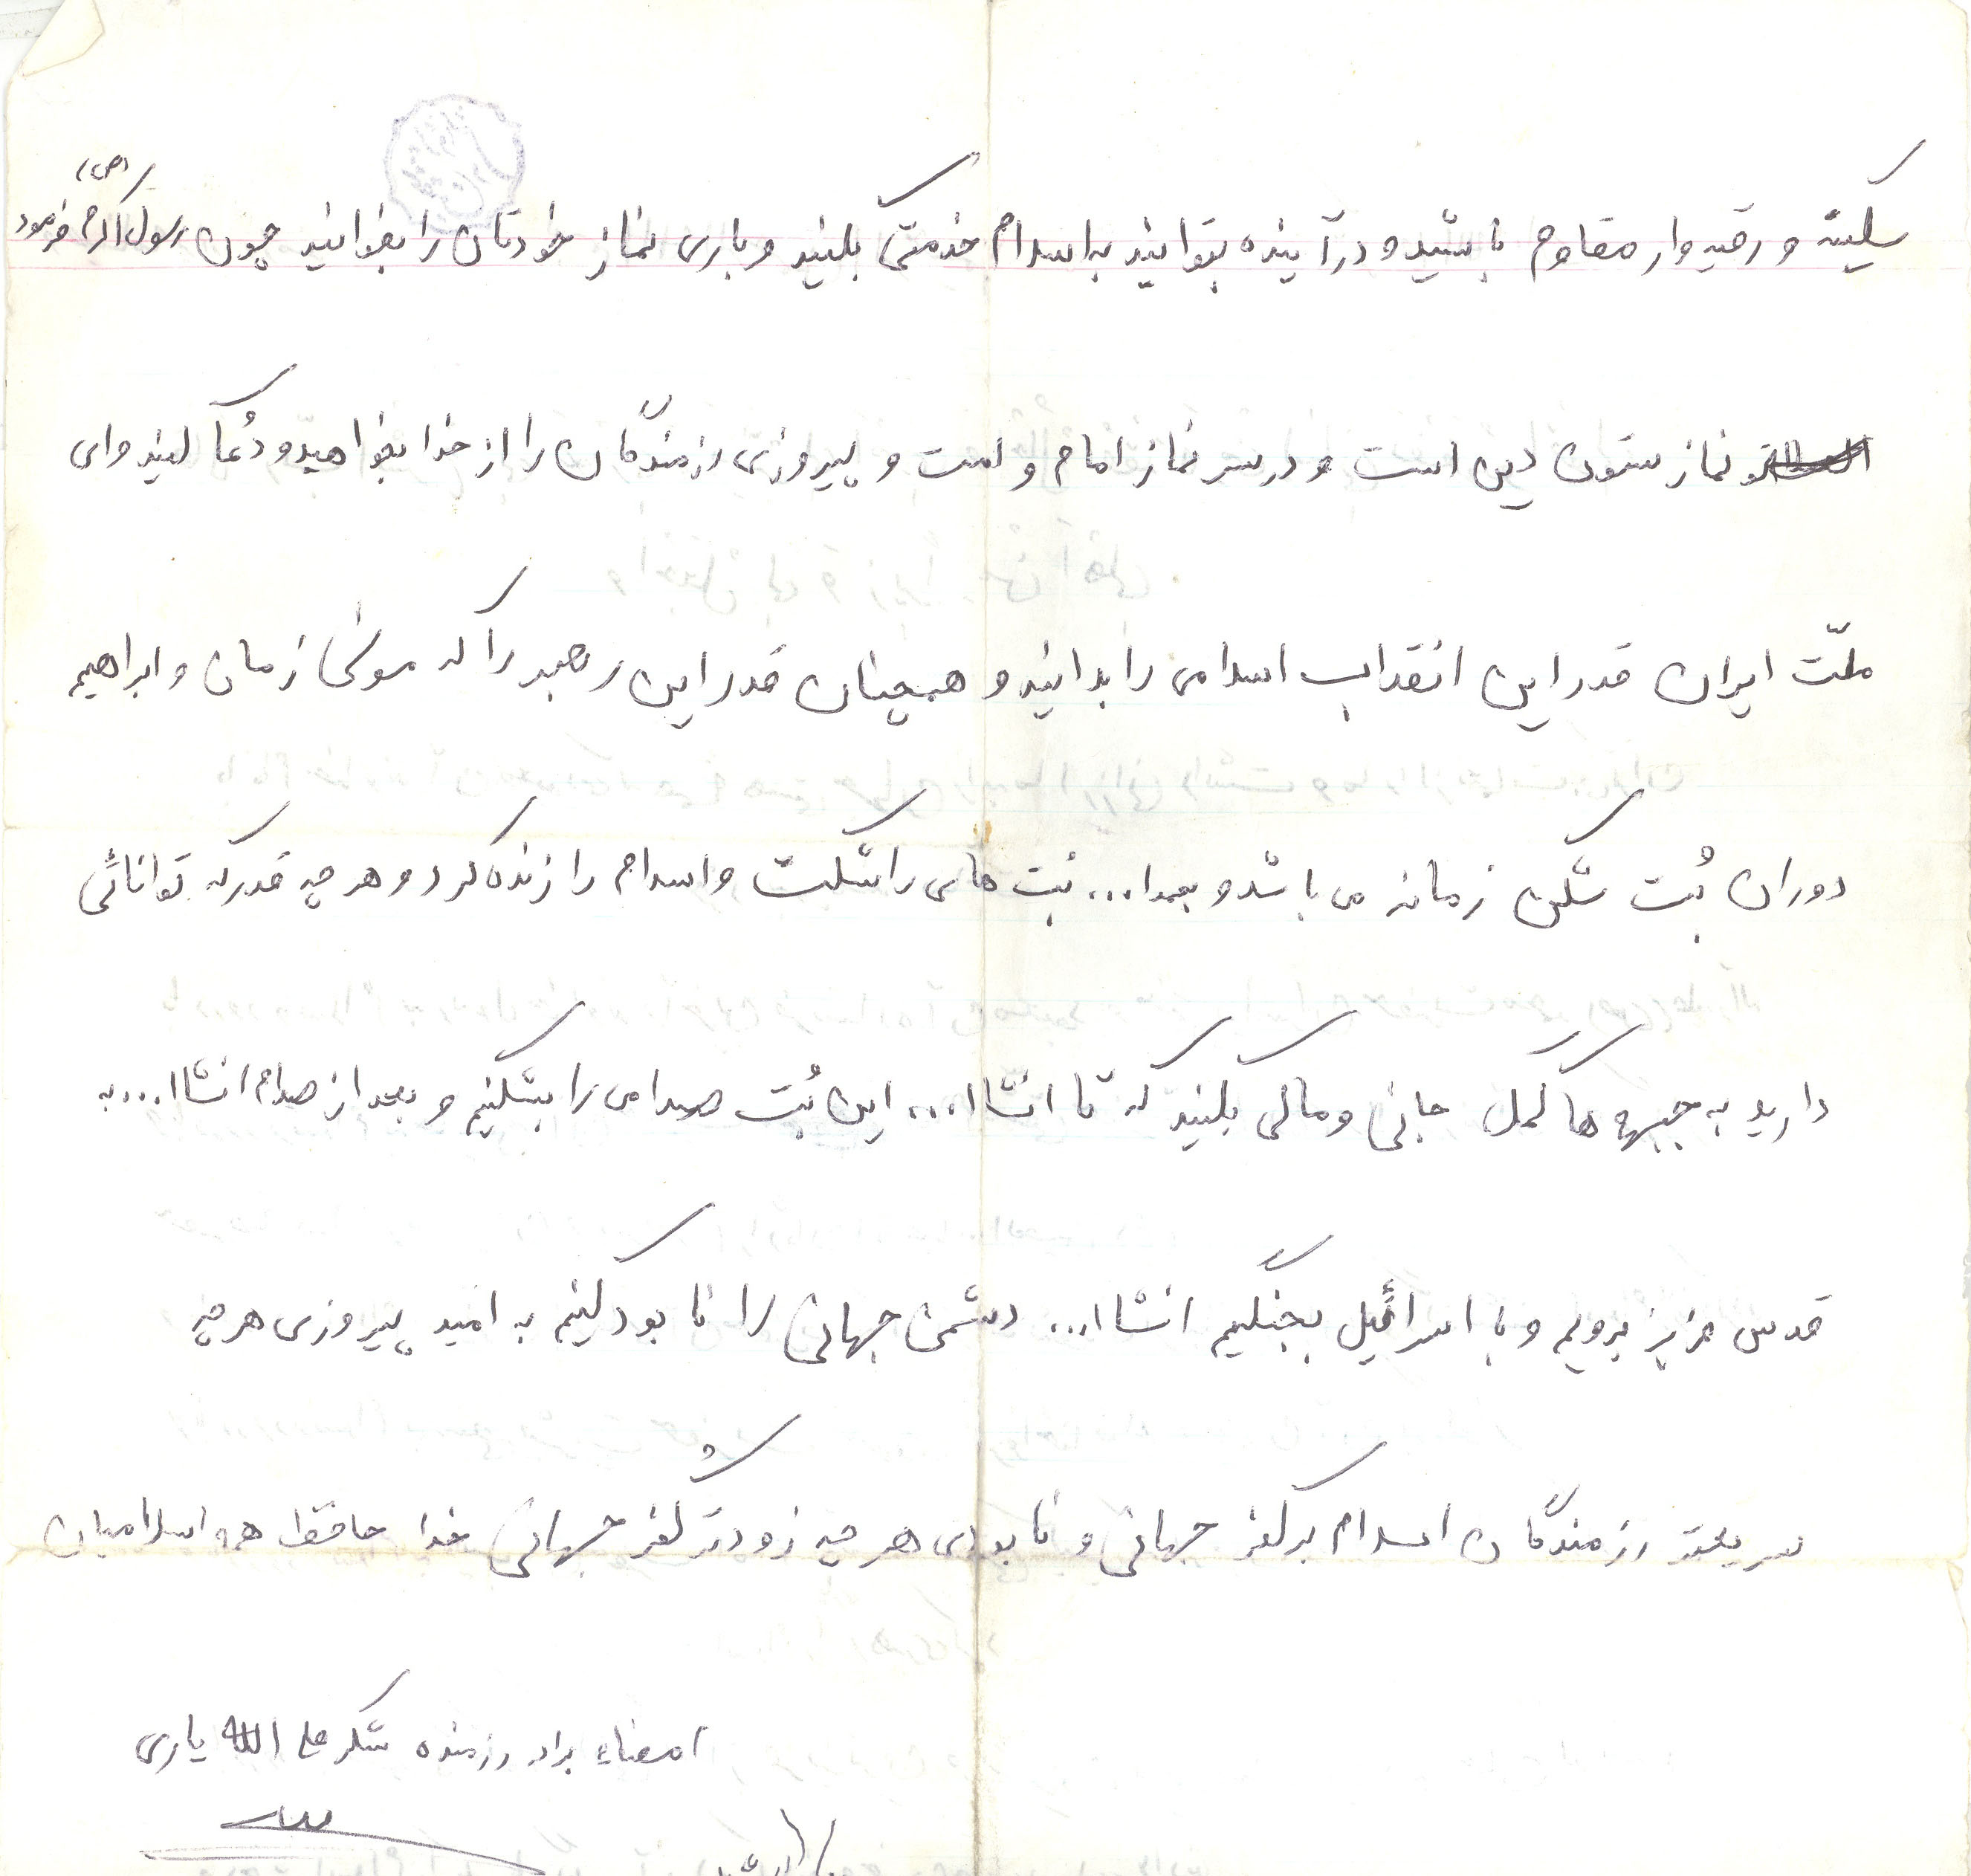 سکینه و رقیه وار مقاوم باشید و در آینده بتوانید به اسلام خدمتی بکنید و باری نماز خودتان را بخوانید چون رسول اکرم (ص) فرمود
نماز ستون دین است و در سر نماز امام و امت و پیروزی رزمندگان را از خدا بخواهید و دُعا کنید و ای
ملّت ایران قدر این انقلاب اسلامی را بدانید و همچنان قدر این رهبر را که موسی زمان و ابراهیم
دوران بُت شکن زمانه می باشد و بحمدا... بُت هایی را شکست و اسلام را زنده کرد و هر چه قدر که توانائی
دارید به جبهه ها کمک جانی و مالی بکنید که تا انشاا... این بُت صدامی را بشکنیم و بعد از صدام انشاا... به
قدس عزیز برویم و با اسرائیل بجنگیم انشاا... دشمن جهانی را نابود کنیم به امید پیروزی هر چه
سریعتر رزمندگان اسلام بر کفر جهانی و نابودی هر چه زودتر کُفر جهانی خدا حافظ همه اسلامیان
امضاء برادر رزمنده شکرعلی الله یاری